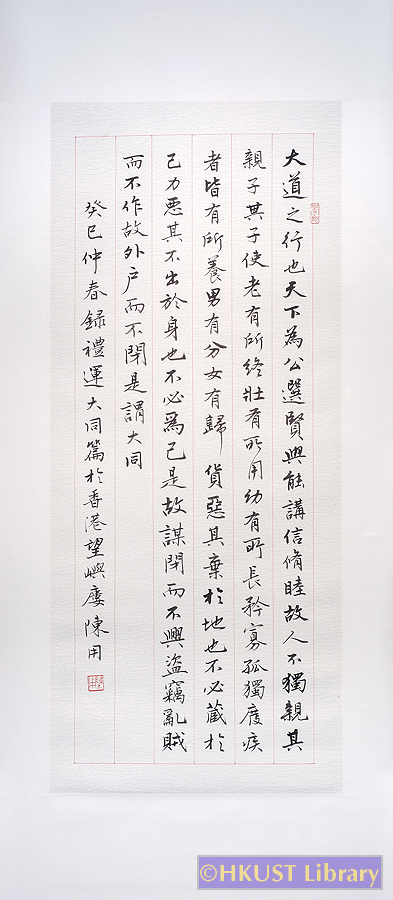 大道之行也天下為公選賢與能講信脩睦故人不獨親其
親子其子使老有所終壯有所用幼有所長矜寡孤獨廢疾
者皆有所養男有分女有歸貨惡其棄於地也不必藏於
己力悪其不出於身也不必爲己是故謀閉而不興盜竊亂賊
而不作故外户而不閉是謂大同
癸巳仲春録禮運大同篇於香港望嶼廔陳用
©HKUST Library